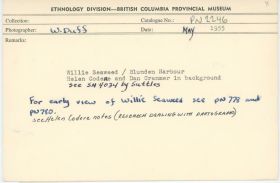 ETHNOLOGY DIVISION—BRITISH COLUMBIA PROVINCIAL MUSEUM
Collection: Catalogue No.: PN 2246
Photographer: W. Duff Date: MAY 1955
Remarks:
Willie Seaweed / Blunden Harbour
Helen Codere and Dan Cranmer in background
see SN 4034 by Suttles
For early view of Willie Seaweed see PN 778 and
PN 780.
see Helen Codere notes (RESEARCH DEALING WITH PHOTOGRAPH)